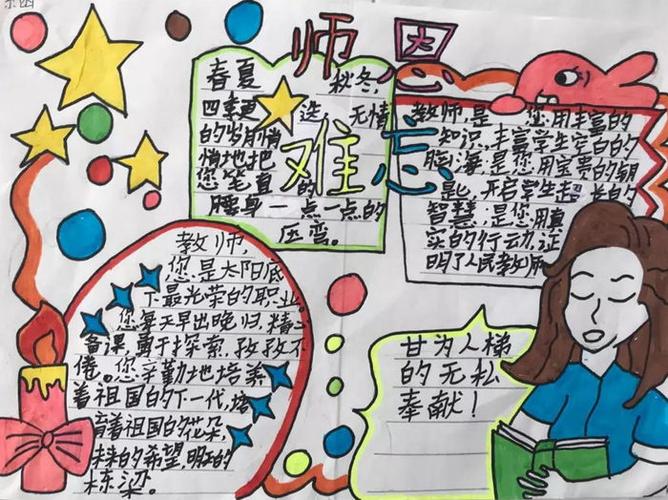 师恩
难忘
春夏秋冬,
四季更迭 无情
的岁月悄
悄地把
您笔直的
腰身一点一点的
压弯。
教师,是您用丰富的
知识,丰富学生空白的
脑海,是您用宝贵的钥
匙,开启学生超长的
智慧;是您用真
实的行动,证
明了人民教师
教师,
您是太阳底
下最光荣的职业。
您每天早出晚归,精心
备课,勇于探索,孜孜不
倦。您辛勤地培养
着祖国的下一代,培
育着祖国的花朵,
未来的希望,明天的
栋梁。
甘为人梯
的无私
奉献!